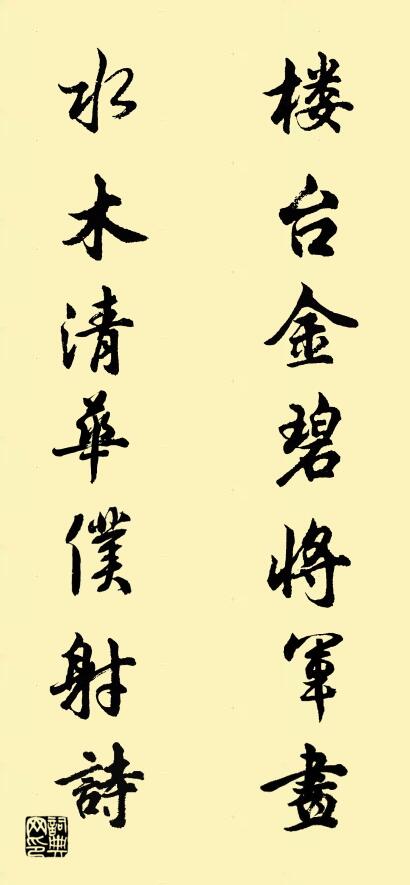 楼台金碧将軍畫
水木清華僕射詩
詞典网印